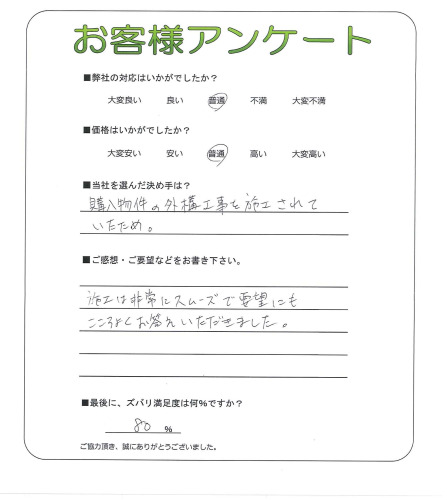 お客様アンケート
■弊社の対応はいかがでしたか?
大変良い 良い 普通 不満 大変不満
■価格はいかがでしたか?
大変安い 安い 普通 高い 大変高い
■当社を選んだ決め手は?
購入物件の外構工事を施工されて
いたため。
■ご感想・ご要望などをお書き下さい。
施工は非常にスムーズで要望にも
こころよくお答えいただきました。
■最後に、ズバリ満足度は何%ですか?
80 %
ご協力頂き、誠にありがとうございました。